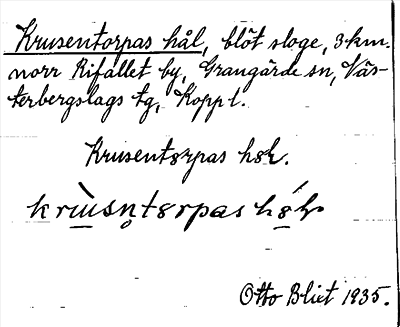 Krusentorpas hål, blöt sloge, 3 km.
norr Rifallet by, Grangärde sn, Väs-
terbergslags tg, Koppl.
Krusentørpas høl.
Otto Blixt 1935.